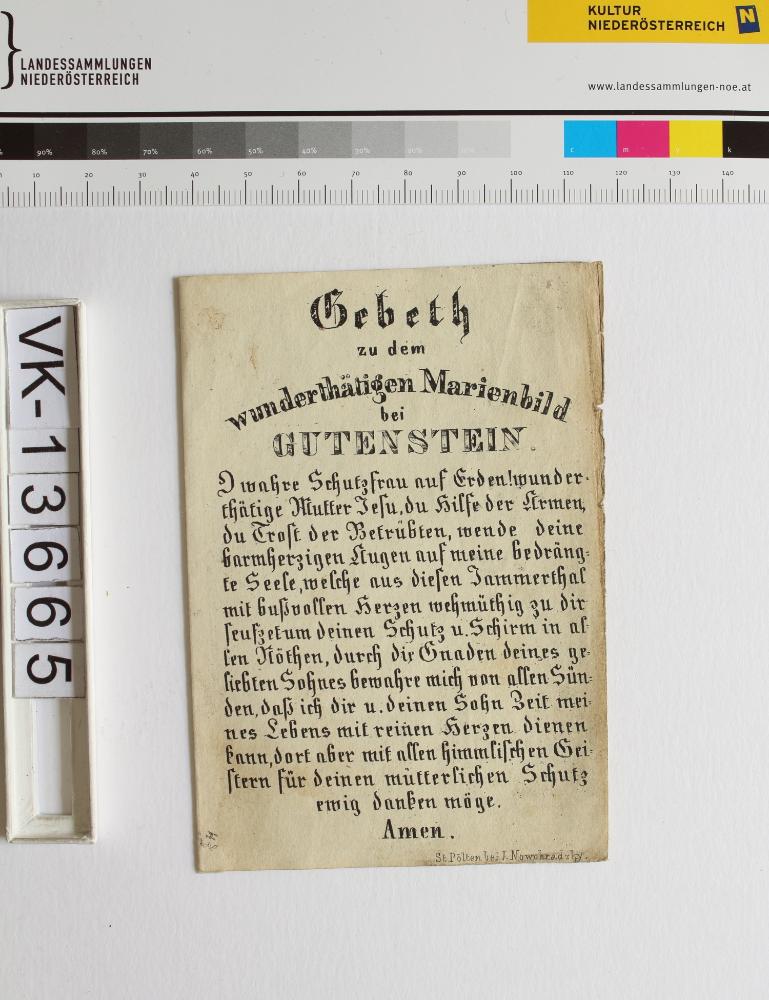 KULTUR
NIEDERÖSTERREICH
N
LANDESSAMMLUNGEN
NIEDERÖSTERREICH
www.landessammlungen-noe.at
90% 80% 70% 60% 50% 40% 30% 20% 10% c m y k
10 20 30 40 50 60 70 80 90 100 110 120 130 140
VK-13665
Gebeth
zu dem
wunderthätigen Marienbild
bei
GUTENSTEIN.
O wahre Schutzfrau auf Erden! wunder-
thätige Mutter Jesu, du Hilfe der Armen,
du Trost der Betrübten, wende deine
barmherzigen Augen auf meine bedräng-
te Seele, welche aus diesen Jammerthal
mit bußvollen Herzen wehmüthig zu dir
seufzet um deinen Schutz u. Schirm in al-
len Nöthen, durch die Gnaden deines ge-
liebten Sohnes bewahre mich von allen Sün-
den, daß ich dir u. deinen Sohn Zeit mei-
nes Lebens mit reinen Herzen dienen
kann, dort aber mit allen himmlischen Gei-
stern für deinen mütterlichen Schutz
ewig danken möge.
Amen.
St. Pölten bei J. Nowohradsky.